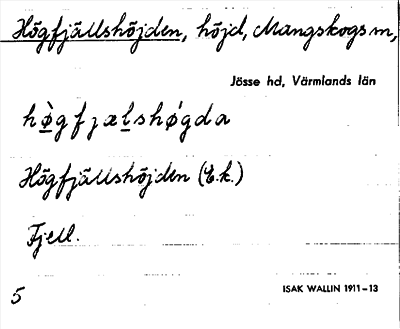 Högfjällshöjden, höjd, Mangskogs sn,
Jösse hd, Värmlands län
hø̀gfjælshǿgda
Högfjällshöjden (E.k.)
Fjell.
5
ISAK WALLIN 1911–13